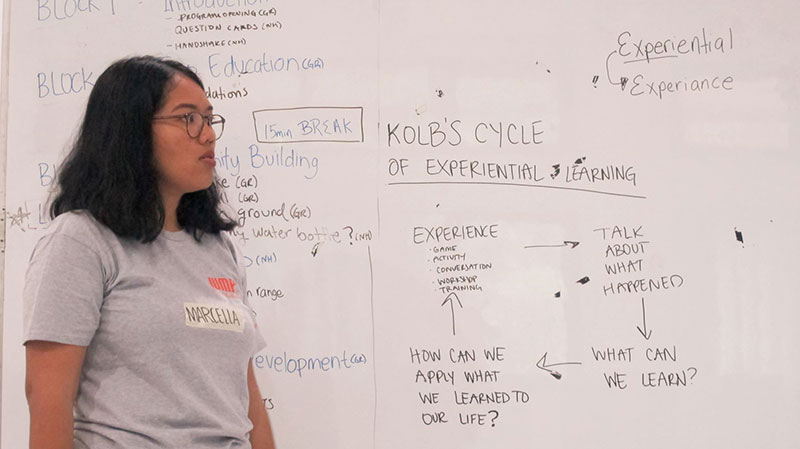 BLOCK 1 Introduction
- PROGRAM OPENING (GR)
- QUESTION CARDS (NH)
- HANDSHAKE (NH)
BLOCK Education (GR)
dations
15min BREAK
Building
(GR)
(GR)
ground (GR)
water bottle? (NH)
(NH)
range
evelopment (GR)
MARCELLA
Experiential
Experiance
KOLB'S CYCLE
OF EXPERIENTIAL LEARNING
EXPERIENCE
· GAME
· ACTIVITY
· CONVERSATION
· WORKSHOP
· TRAINING
TALK
ABOUT
WHAT
HAPPENED
WHAT CAN
WE LEARN?
HOW CAN WE
APPLY WHAT
WE LEARNED TO
OUR LIFE?